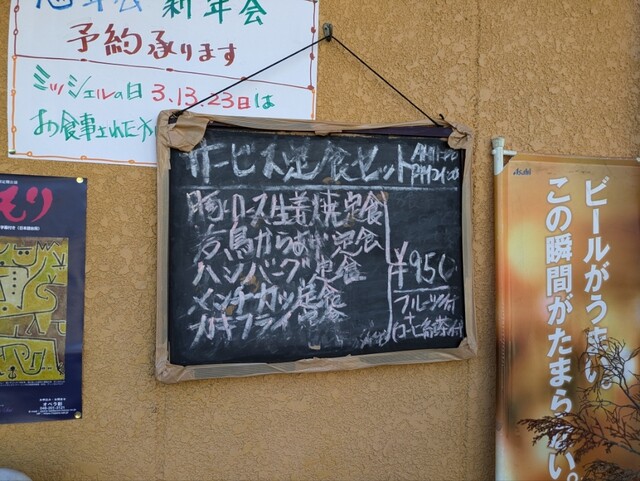 忘年会 新年会
予約承ります
ミッシェルの日 3.13.23日は
お食事された方
サービス定食セット
豚ロース生姜焼定食
若鳥からあげ定食
ハンバーグ定食
メンチカツ定食
カキフライ定食
¥950
フルーツ付
+
コーヒー紅茶付
もり
オペラ館
Asahi
ビールがうまい。
この瞬間がたまらない。